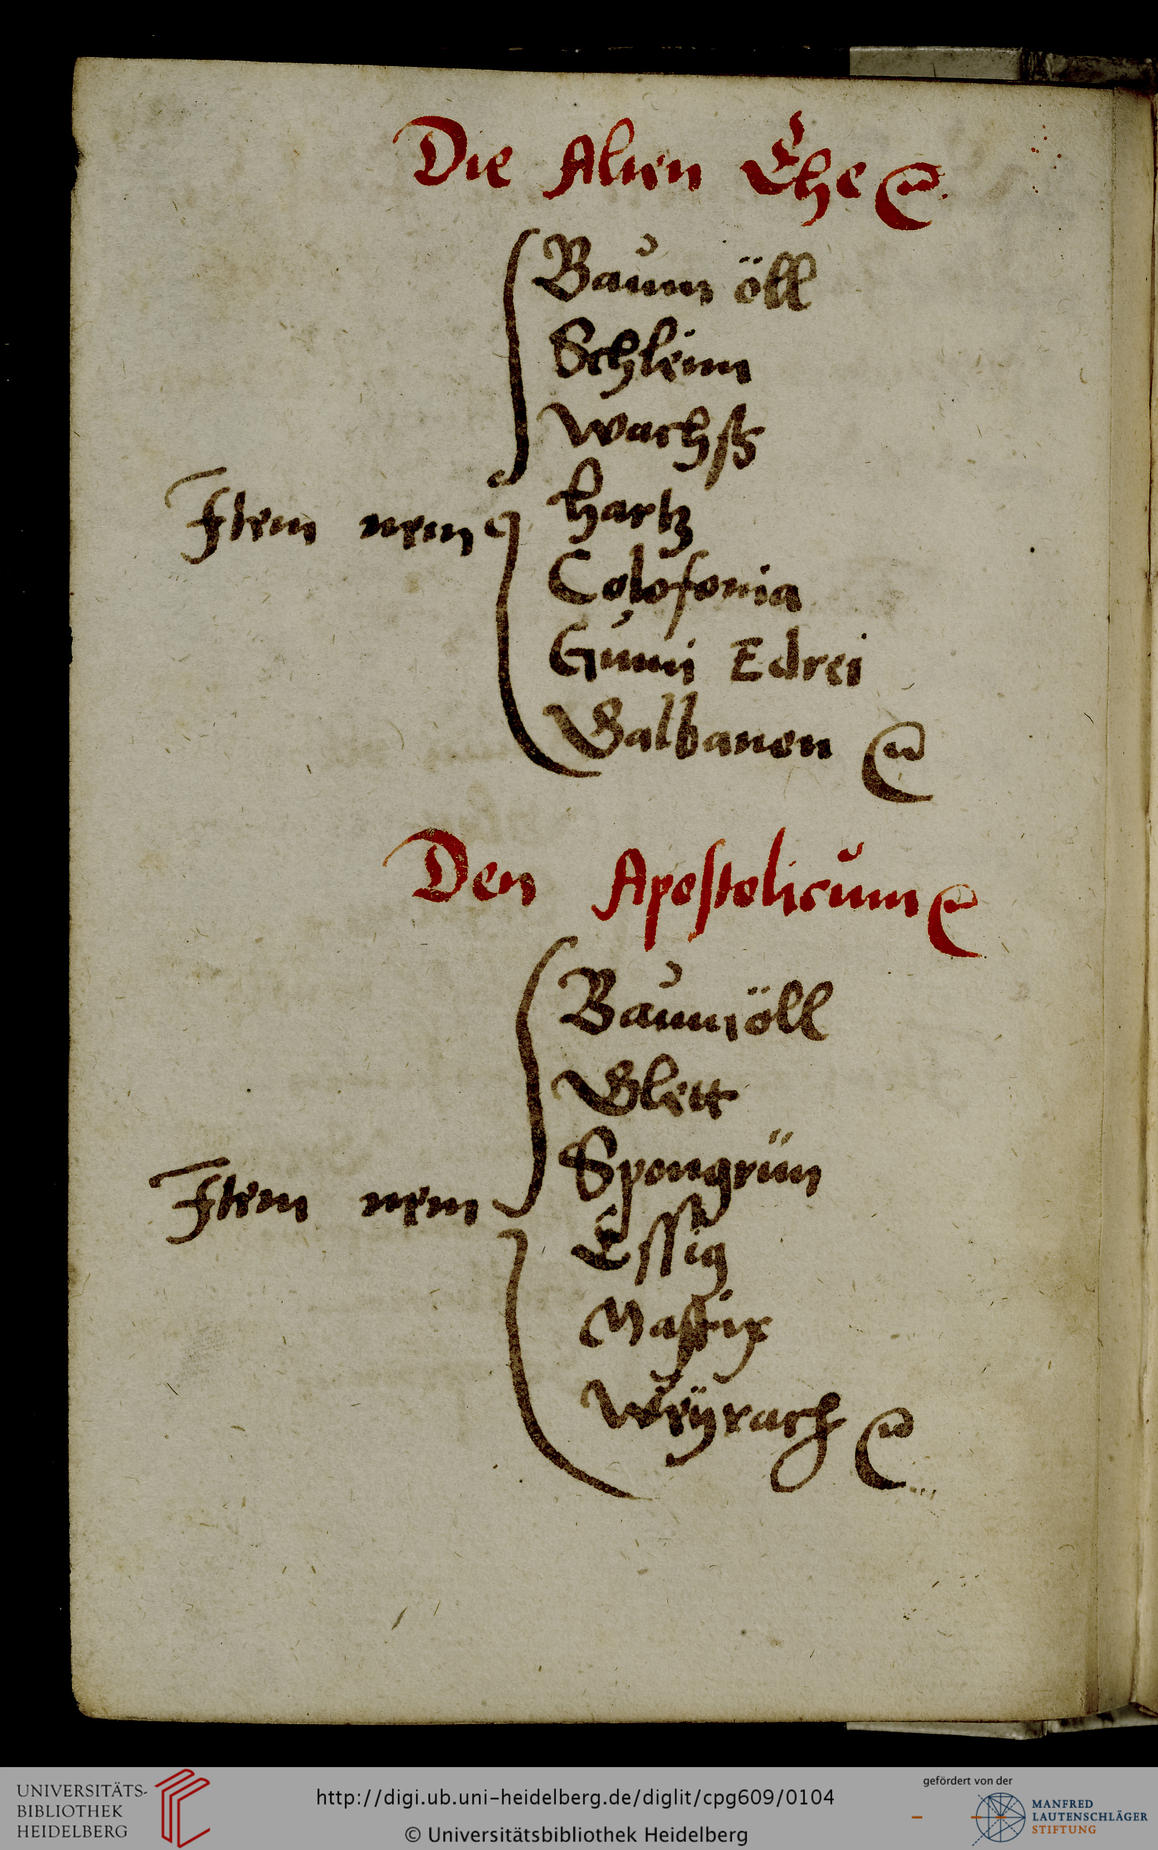 Die Alten Ehe
Baum öll
Schleim
Wachß
Item nem hartz
Colofonia
Gumi Edrei
Galbanen
Den Apostolicum
Baumöll
Glett
Spongrün
Item nem
Essig
Mastix
Weÿrach
UNIVERSITÄTS-
BIBLIOTHEK
HEIDELBERG
http://digi.ub.uni-heidelberg.de/diglit/cpg609/0104
© Universitätsbibliothek Heidelberg
gefördert von der
MANFRED
LAUTENSCHLÄGER
STIFTUNG